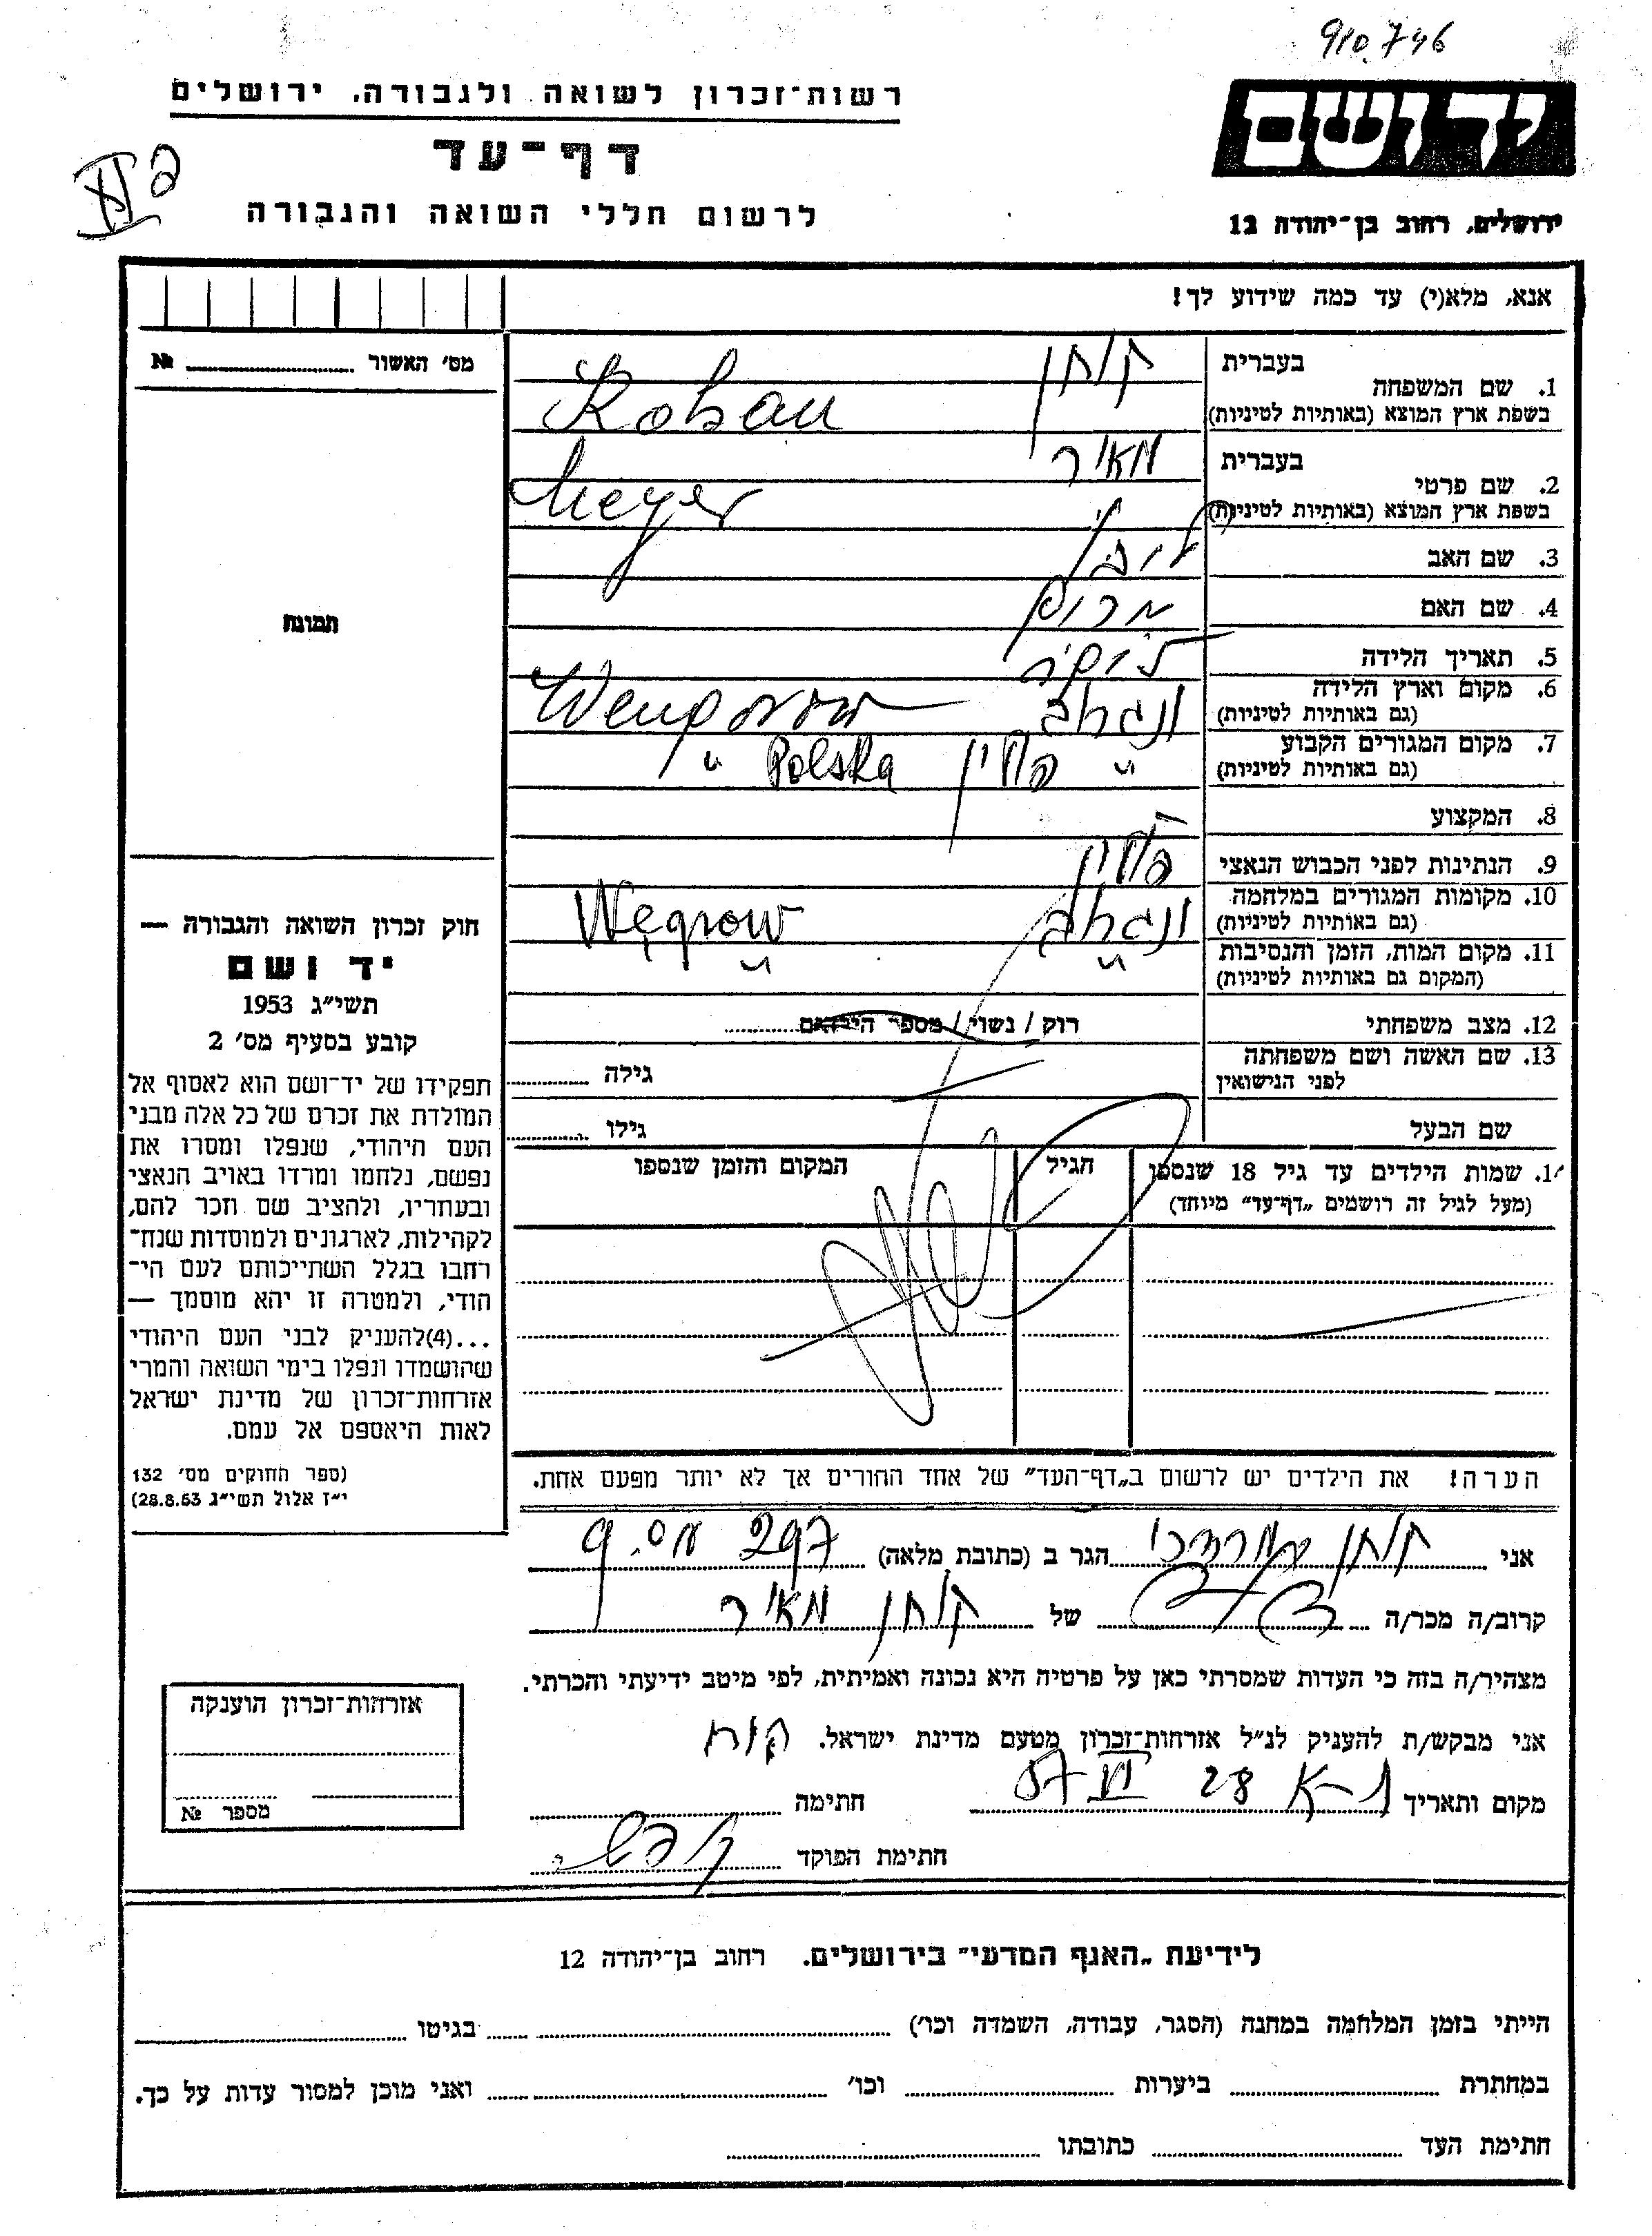 910.746
רשות־זכרון לשואה ולגבורה, ירושלים
יד ושם
דף־עד
לרשום חללי השואה והגבורה
ירושלים, רחוב בן־יהודה 12
אנא, מלא(י) עד כמה שידוע לך!
מס׳ האשור № ........
1. שם המשפחה
בעברית
בשפת ארץ המוצא (באותיות לטיניות)
2. שם פרטי
בעברית מאיר
בשפת ארץ המוצא (באותיות לטיניות) Meyer
3. שם האב
4. שם האם
5. תאריך הלידה
6. מקום וארץ הלידה
(גם באותיות לטיניות)
7. מקום המגורים הקבוע
(גם באותיות לטיניות) " פולין Polska "
8. המקצוע
9. הנתינות לפני הכבוש הנאצי פולין
10. מקומות המגורים במלחמה
(גם באותיות לטיניות) ונגרוב Węgrow
11. מקום המות, הזמן והנסיבות " "
(המקום גם באותיות לטיניות)
12. מצב משפחתי רוק / נשוי / מספר הילדים ........
13. שם האשה ושם משפחתה
לפני הנישואין
גילה ........
שם הבעל גילו ........
שמות הילדים עד גיל 18 שנספו הגיל המקום והזמן שנספו
(מעל לגיל זה רושמים „דף־עד" מיוחד)
הערה! את הילדים יש לרשום ב„דף־העד" של אחד ההורים אך לא יותר מפעם אחת.
תמונה
חוק זכרון השואה והגבורה —
יד ושם
תשי״ג 1953
קובע בסעיף מס׳ 2
תפקידו של יד־ושם הוא לאסוף אל
המולדת את זכרם של כל אלה מבני
העם היהודי, שנפלו ומסרו את
נפשם, נלחמו ומרדו באויב הנאצי
ובעוזריו, ולהציב שם וזכר להם,
לקהילות, לארגונים ולמוסדות שנח־
רחבו בגלל השתייכותם לעם הי־
הודי, ולמטרה זו יהא מוסמך —
...(4)להעניק לבני העם היהודי
שהושמדו ונפלו בימי השואה והמרי
אזרחות־זכרון של מדינת ישראל
לאות היאספם אל עמם.
(ספר החוקים מס׳ 132
י״ז אלול תשי״ג 28.8.53)
אני קוחן מרדכי הגר ב (כתובת מלאה)
קרוב/ה מכר/ה של קוחן מאיר
מצהיר/ה בזה כי העדות שמסרתי כאן על פרטיה היא נכונה ואמיתית, לפי מיטב ידיעתי והכרתי.
אני מבקש/ת להעניק לנ״ל אזרחות־זכרון מטעם מדינת ישראל.
מקום ותאריך 28 VI 57 חתימה
חתימת הפוקד
אזרחות־זכרון הוענקה
מספר №
לידיעת „האגף המדעי" בירושלים, רחוב בן־יהודה 12
הייתי בזמן המלחמה במחנה (הסגר, עבודה, השמדה וכו׳) ........ בגיטו ........
במחתרת ........ ביערות ........ וכו׳ ........ ואני מוכן למסור עדות על כך.
חתימת העד ........ כתובתו ........